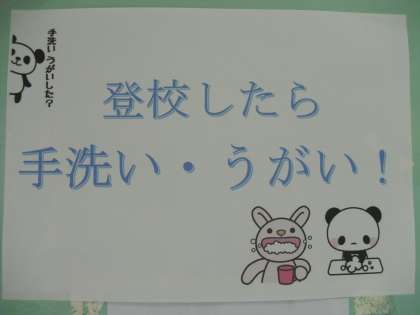 手洗い うがいした?
登校したら
手洗い・うがい!